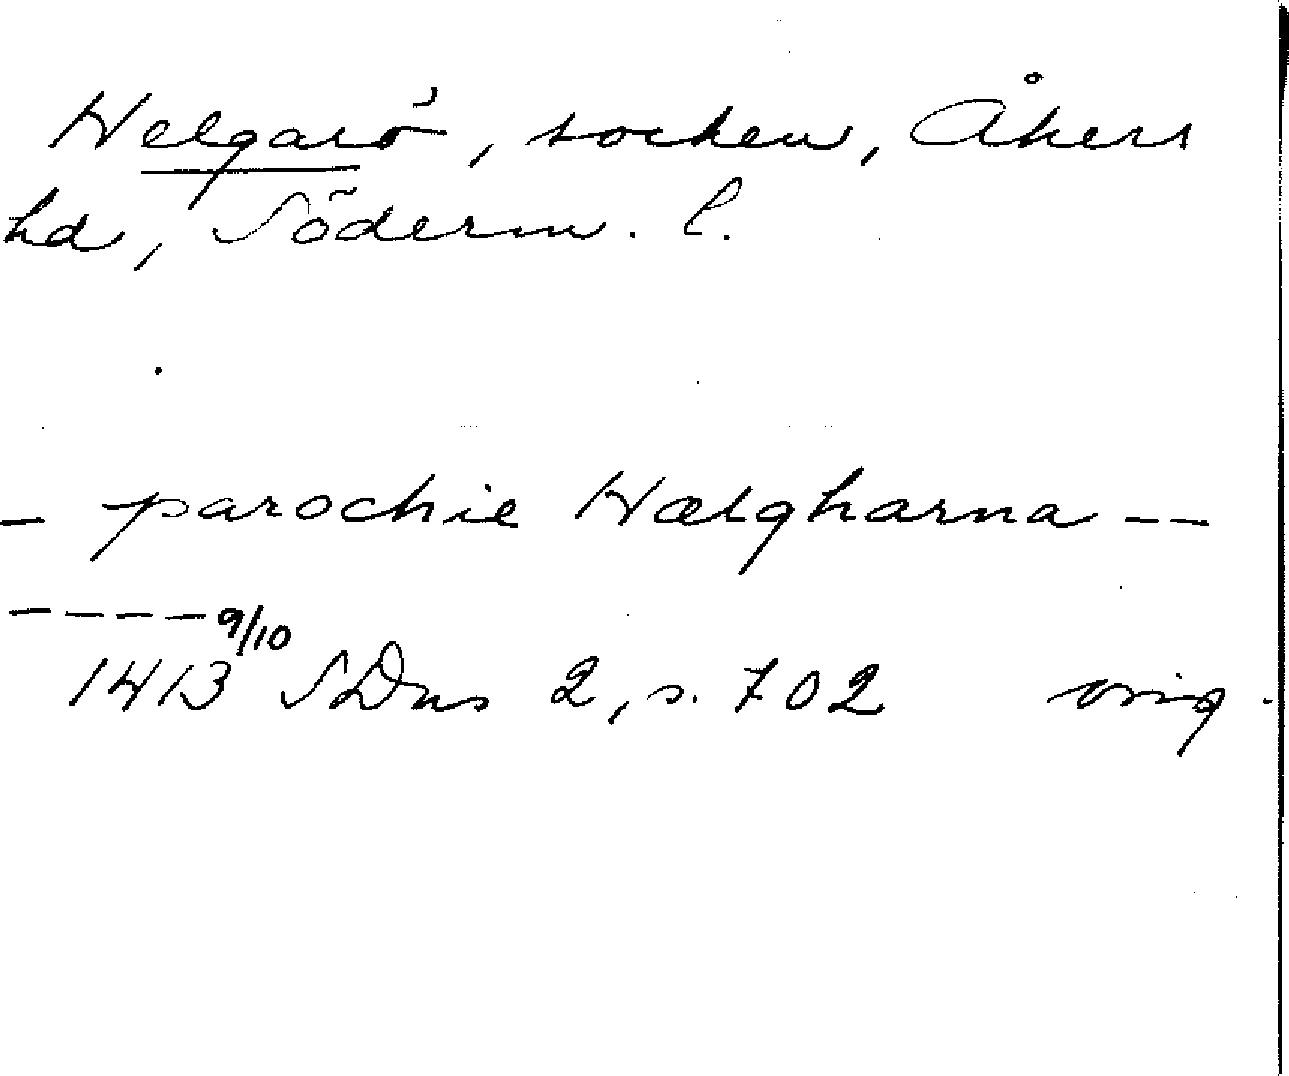 Helgarö, socken, Åkers
hd, Söderm. l.
- parochie Hælgharna --
---- 9/10
1413 SDns 2, s. 702 orig.